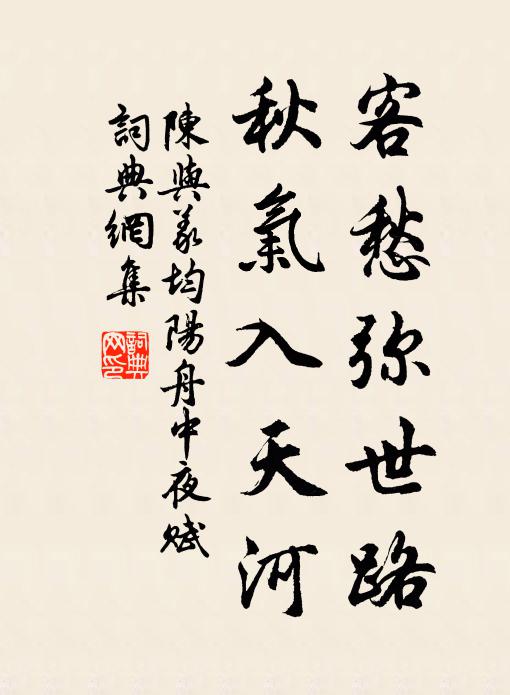 客愁弥世路
秋氣入天河
陳與義均陽舟中夜賦
詞典網集
詞典
网印